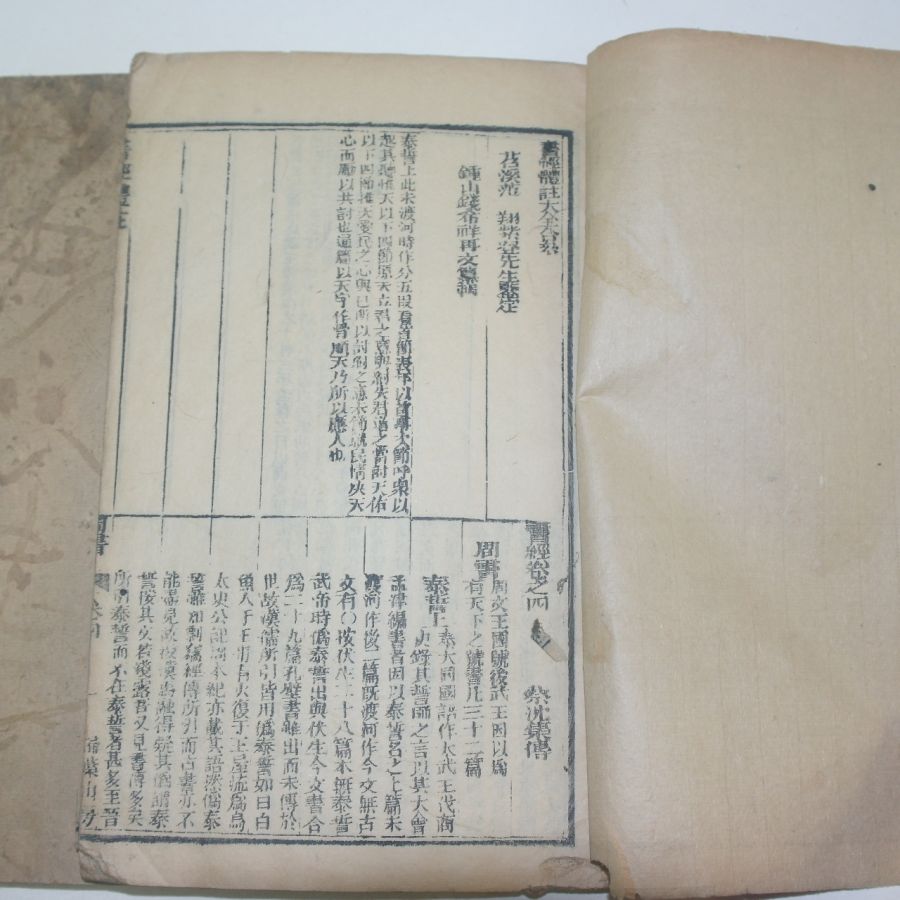 書經體註大全合
苕溪范 翔紫登先生鑒定
鍾山錢希祥再文纂輯
泰誓上此未渡河時作分五段看首節表年以首事次節呼衆以
起其聽惟天以下四節原天立君之意與紂失君道之當討天佑
以下四節推天愛民之心與已所以討紂之意末節民情決天
心而應以共討也通篇以天字作骨順天乃所以應人也
書經卷之四 蔡沈集傳
周書
周文王國號後武王因以爲
有天下之號書凡三十二篇
泰誓上
泰大同國語作大武王伐商
史錄其誓師之言以其大會
孟津編書者因以泰誓名之上篇未
渡河作後二篇既渡河作今文無古
文有○按伏生二十八篇本無泰誓
武帝時僞泰誓出與伏生今文書合
爲二十九篇孔壁書雖出而未傳於
世故漢儒所引皆用僞泰誓如曰白
魚入于王舟有火復于王屋流爲烏
太史公記周本紀亦載其語然僞泰
誓雖知剽竊經傳所引而古書亦不
能盡見故後漢馬融得疑其僞謂泰
誓按其文若淺露吾又見書傳多矣
所引泰誓而不在泰誓者甚多至晉
周書
卷四